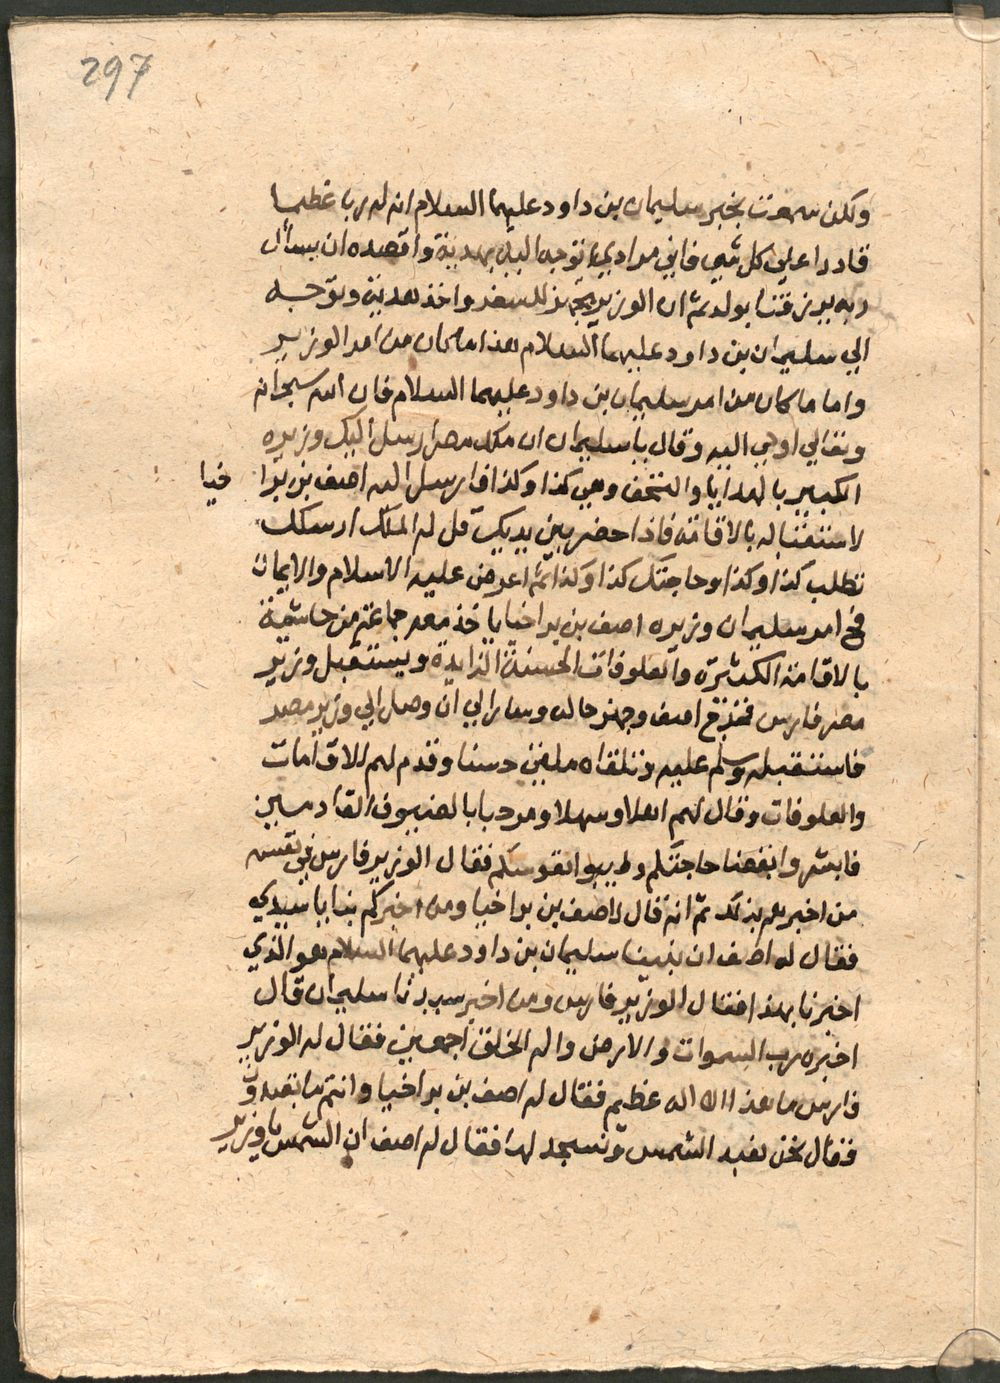 297
ولكن سمعت بخبر سليمان بن داود عليهما السلام انه له ربا عظيما
قادرا علي كل شي فاني مرادي نتوجه اليه بهدية واقصده ان يسأل
ربه يرزقنا بولد ثم ان الوزير تجهز للسفر واخذ هديته وتوجه
الي سليمان بن داود عليهما السلام هذا ما كان من امر الوزير
واما ما كان من امر سليمان بن داود عليهما السلام فان الله سبحانه
وتعالي اوحي اليه وقال يا سليمان ان ملك مصر ارسل اليك وزيره
الكبير بالهدايا والتحف وهي كذا وكذا فارسل اليه اصف بن برا خيا
لاستقباله بالاقامة فاذا حضر بين يديك قل له الملك ارسلك
تطلب كذا وكذا وحاجتك كذا وكذا ثم اعرض عليه الاسلام والايمان
فح امر سليمان وزيره اصف بن براخيا ياخذ معه جماعة من حاشيته
بالاقامة الكثيرة والعلوفات الحسنة الزايدة ويستقبل وزير
مصر فارس فخرج اصف وجهز حاله وسار الي ان وصل الي وزير مصر
فاستقبله وسلم عليه وتلقاه ملقي حسنا وقدم لهم الاقامات
والعلوفات وقال لهم اهلا وسهلا ومرحبا بالضيوف القادمين
فابشروا بقضا حاجتكم وطيبوا نفوسكم فقال الوزير فارس في نفسه
من اخبرهم بذلك ثم انه قال لاصف بن براخيا ومن اخبركم بنا يا سيدي
فقال له اصف ان نبينا سليمان بن داود عليهما السلام هو الذي
اخبرنا بهذا فقال الوزير فارس ومن اخبر سيدنا سليمان قال
اخبره رب السموات والارض واله الخلق اجمعين فقال له الوزير
فارس ما هذا الا اله عظيم فقال له اصف بن براخيا وانتم ما تعبدون
فقال نحن نعبد الشمس ونسجد لها فقال له اصف ان الشمس يا وزير